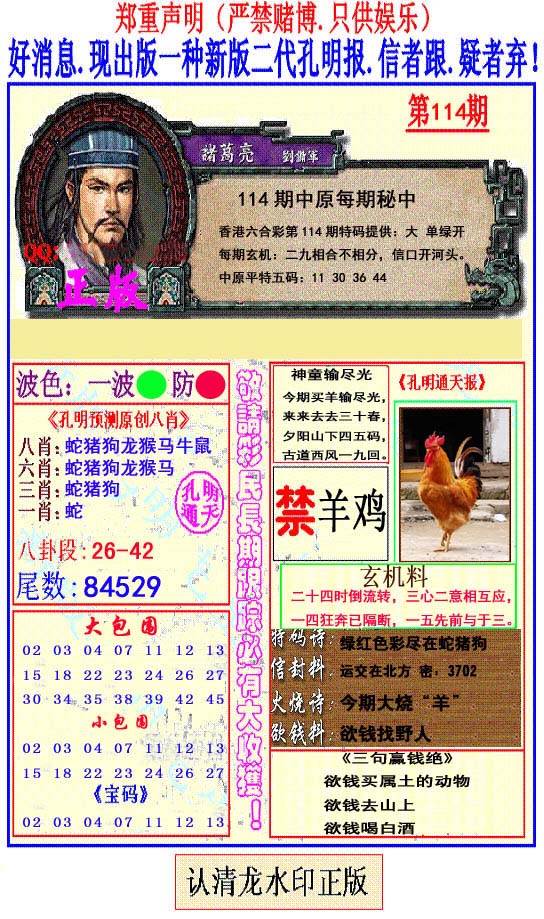 郑重声明（严禁赌博.只供娱乐）
好消息.现出版一种新版二代孔明报.信者跟.疑者弃！
第114期
諸葛亮 劉備軍
114 期中原每期秘中
香港六合彩第 114 期特码提供：大 单绿开
每期玄机：二九相合不相分，信口开河头。
中原平特五码：11 30 36 44
QQ:
正版
波色：一波 防
《孔明预测原创八肖》
八肖:蛇猪狗龙猴马牛鼠
六肖:蛇猪狗龙猴马
三肖:蛇猪狗
一肖:蛇
孔明
通天
八卦段:26-42
尾数:84529
大包围
02 03 04 07 11 12 13
15 18 22 23 24 26 27
30 34 35 38 39 42 45
小包围
02 03 04 07 11 12 13
15 22 23 24 26 27
《宝码》
02 03 04 07 11 12 13
敬請彩民長期跟踪必有大收獲！
神童输尽光
今期买羊输尽光，
来来去去三十春，
夕阳山下四五码，
古道西风一九回。
《孔明通天报》
禁羊鸡
玄机料
二十四时倒流转，三心二意相互应，
一四狂奔已隔断，一五先前与于三。
特码诗：绿红色彩尽在蛇猪狗
信封料：运交在北方 密：3702
火烧诗：今期大烧“羊”
欲钱料：欲钱找野人
《三句赢钱绝》
欲钱买属土的动物
欲钱去山上
欲钱喝白酒
认清龙水印正版